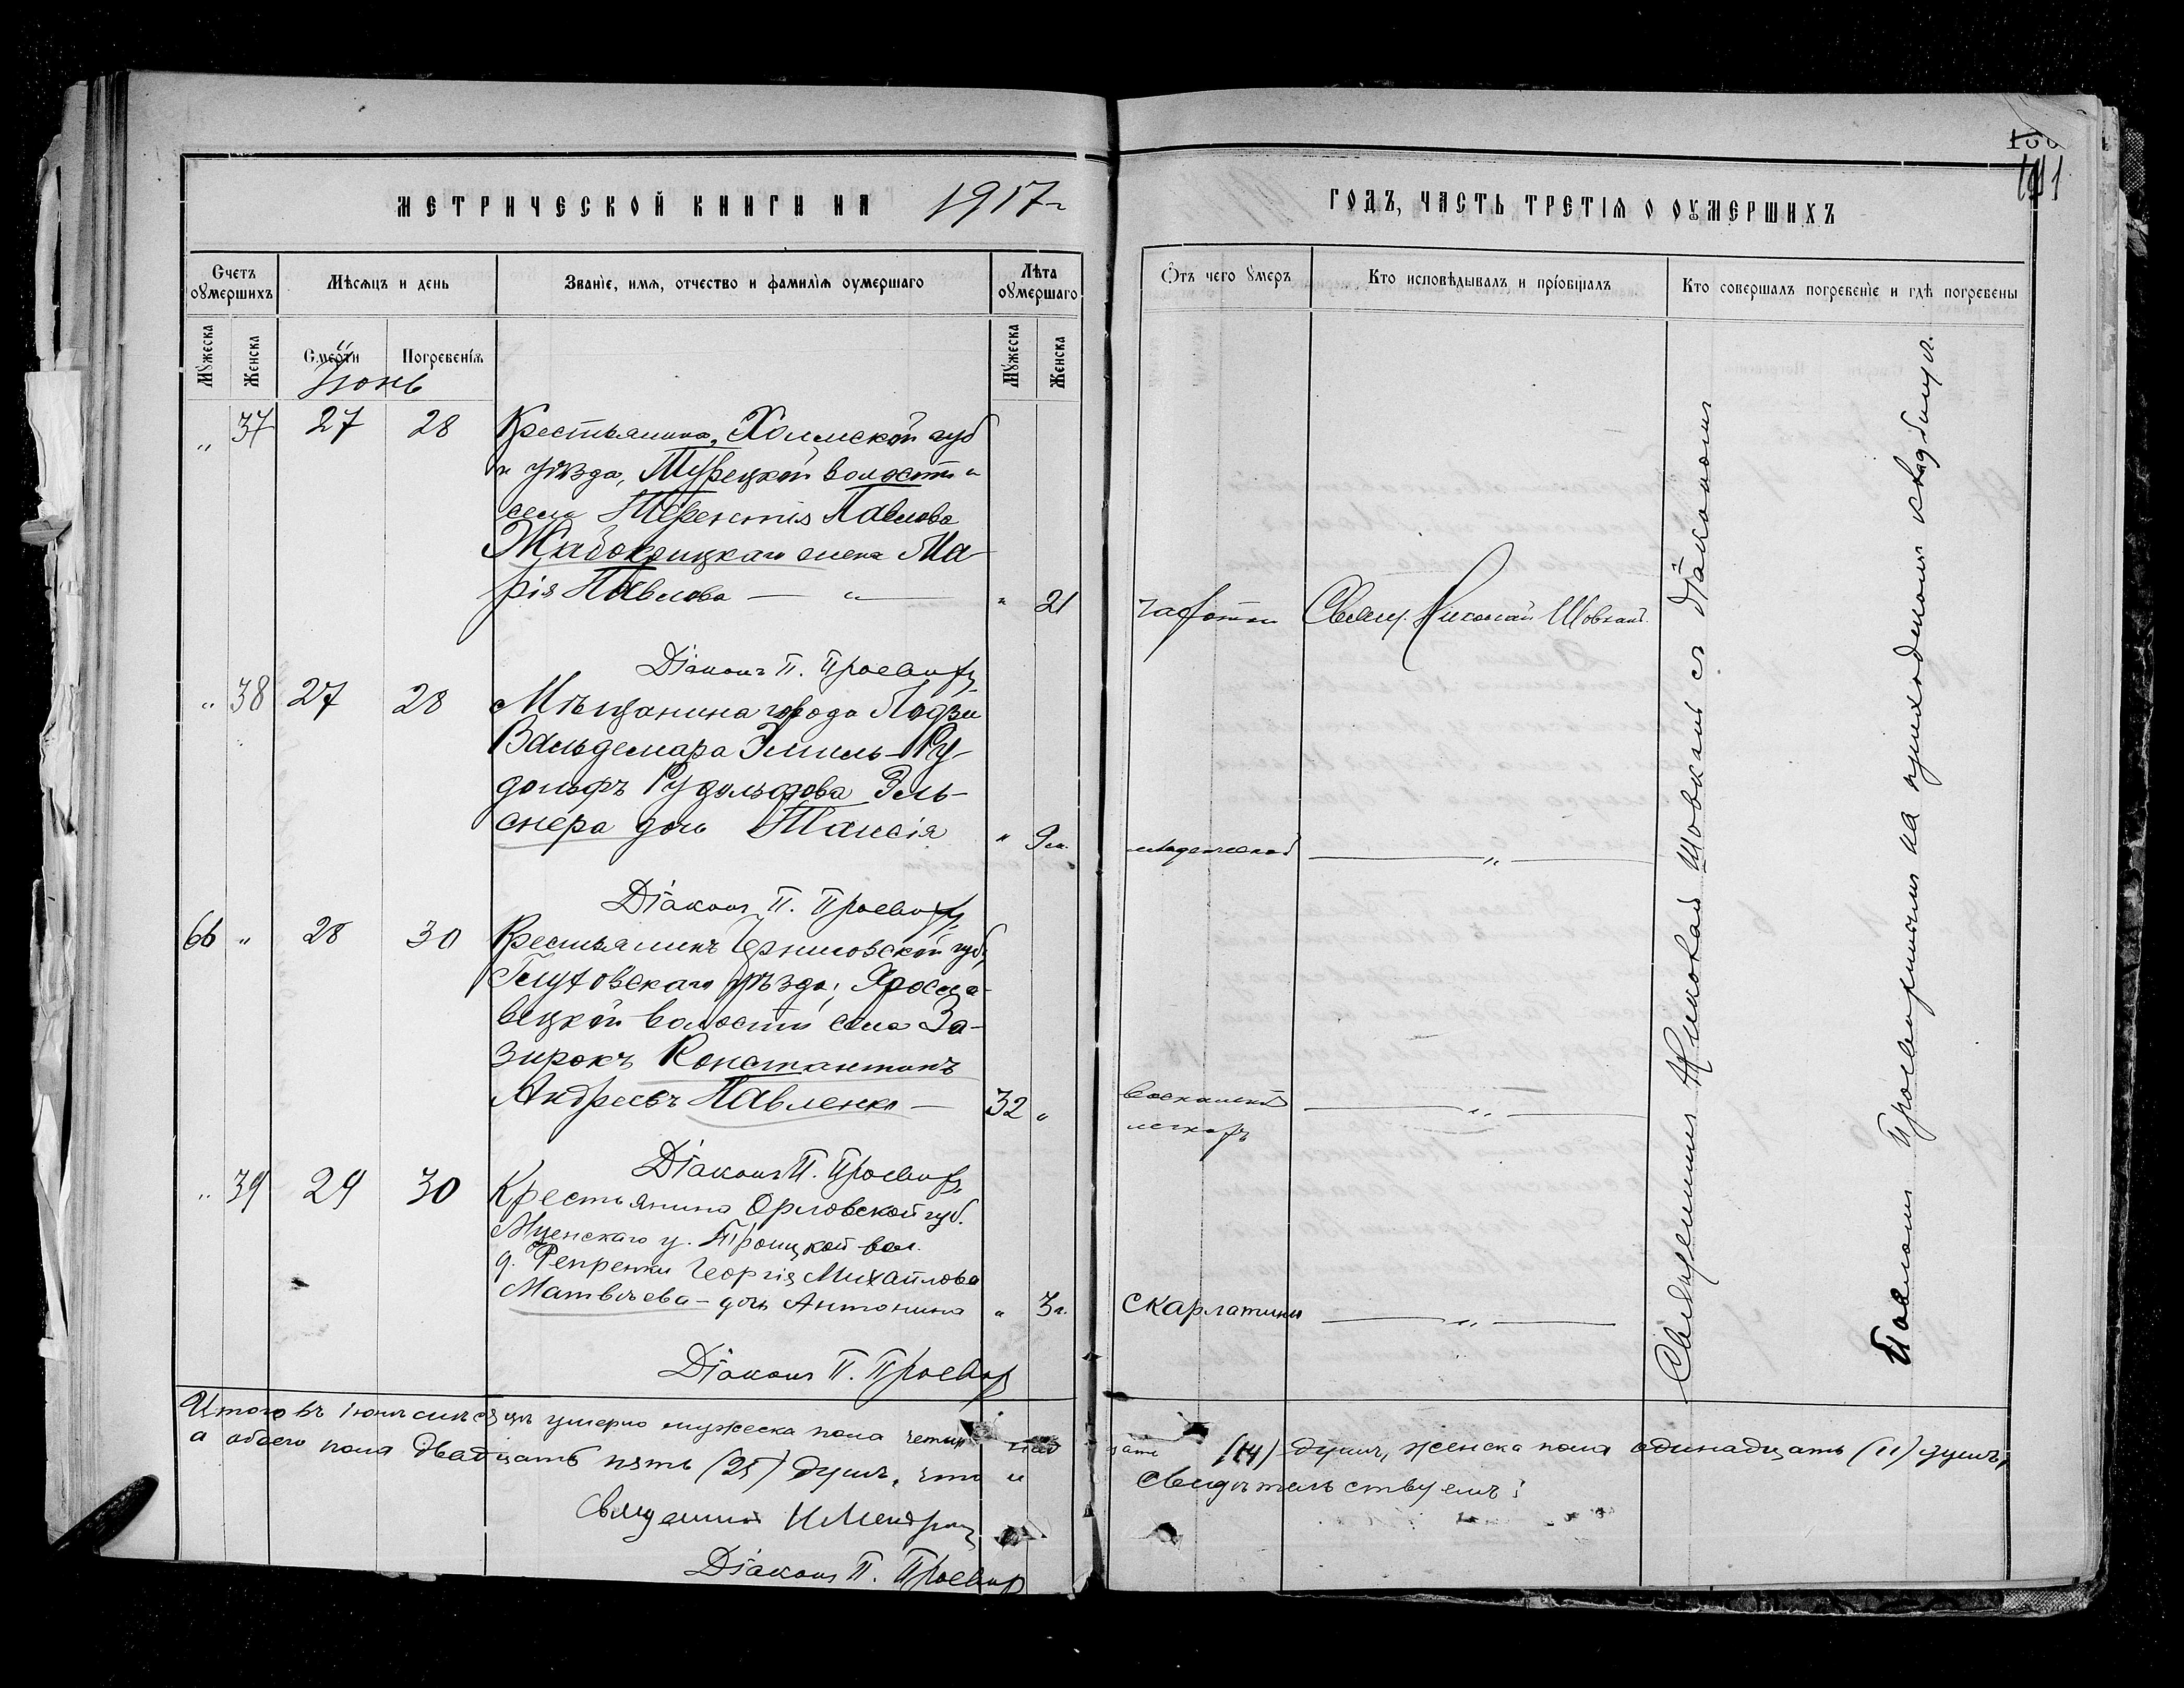 МЕТРИЧЕСКОЙ КНИГИ НА 1917 г
ГОДЪ, ЧАСТЬ ТРЕТІЯ О ОУМЕРШИХЪ
141
Счетъ оумершихъ
Мѣсяцъ и день
Званіе, имя, отчество и фамилія оумершаго
Лѣта оумершаго
Отъ чего оумеръ
Кто исповѣдывалъ и пріобщалъ
Кто совершалъ погребеніе и гдѣ погребены
Мужеска
Женска
Смерти
Погребенія
Мужеска
Женска
Іюнь
" 37 27 28 Крестьянина, Холмской губ
и уѣзда, волости
села Терентія Павлова
Жабокрицкаго жена Ма-
рія Павлова — " — " 21 чахотки Свящ. Николай Шовкань
Діаконъ П. Просвир
" 38 27 28 Мѣщанина города Лодзи
Вальдемара Эмиль-Ру-
дольфъ Рудольфова Эль-
снера дочь Таисія " 9 м. младенческой — " —
Діаконъ П. Просвир
66 " 28 30 Крестьянинъ Черниговской губ,
Глуховскаго уѣзда, Яросла-
вецкой волости села За-
зирокъ Константинъ
Андреевъ Павленко — 32 " — " —
Діаконъ П. Просвир
" 39 29 30 Крестьянина Орловской губ.
Мценскаго у. Троицкой вол.
д. Георгія Михайлова
Матвѣева — дочь Антонина " 3 г. Скарлатины — " —
Діаконъ П. Просвир
Священникъ Николай Шовкань съ Діакономъ
Павломъ на приходскомъ кладбищѣ.
Итого въ іюнѣ мѣсяцѣ умерло мужеска пола четырнадцать (14) душъ, женска пола одинадцать (11) душъ,
а обоего пола двадцать пять (25) душъ, что и свидѣтельствуемъ:
Священникъ
Діаконъ П. Просвир